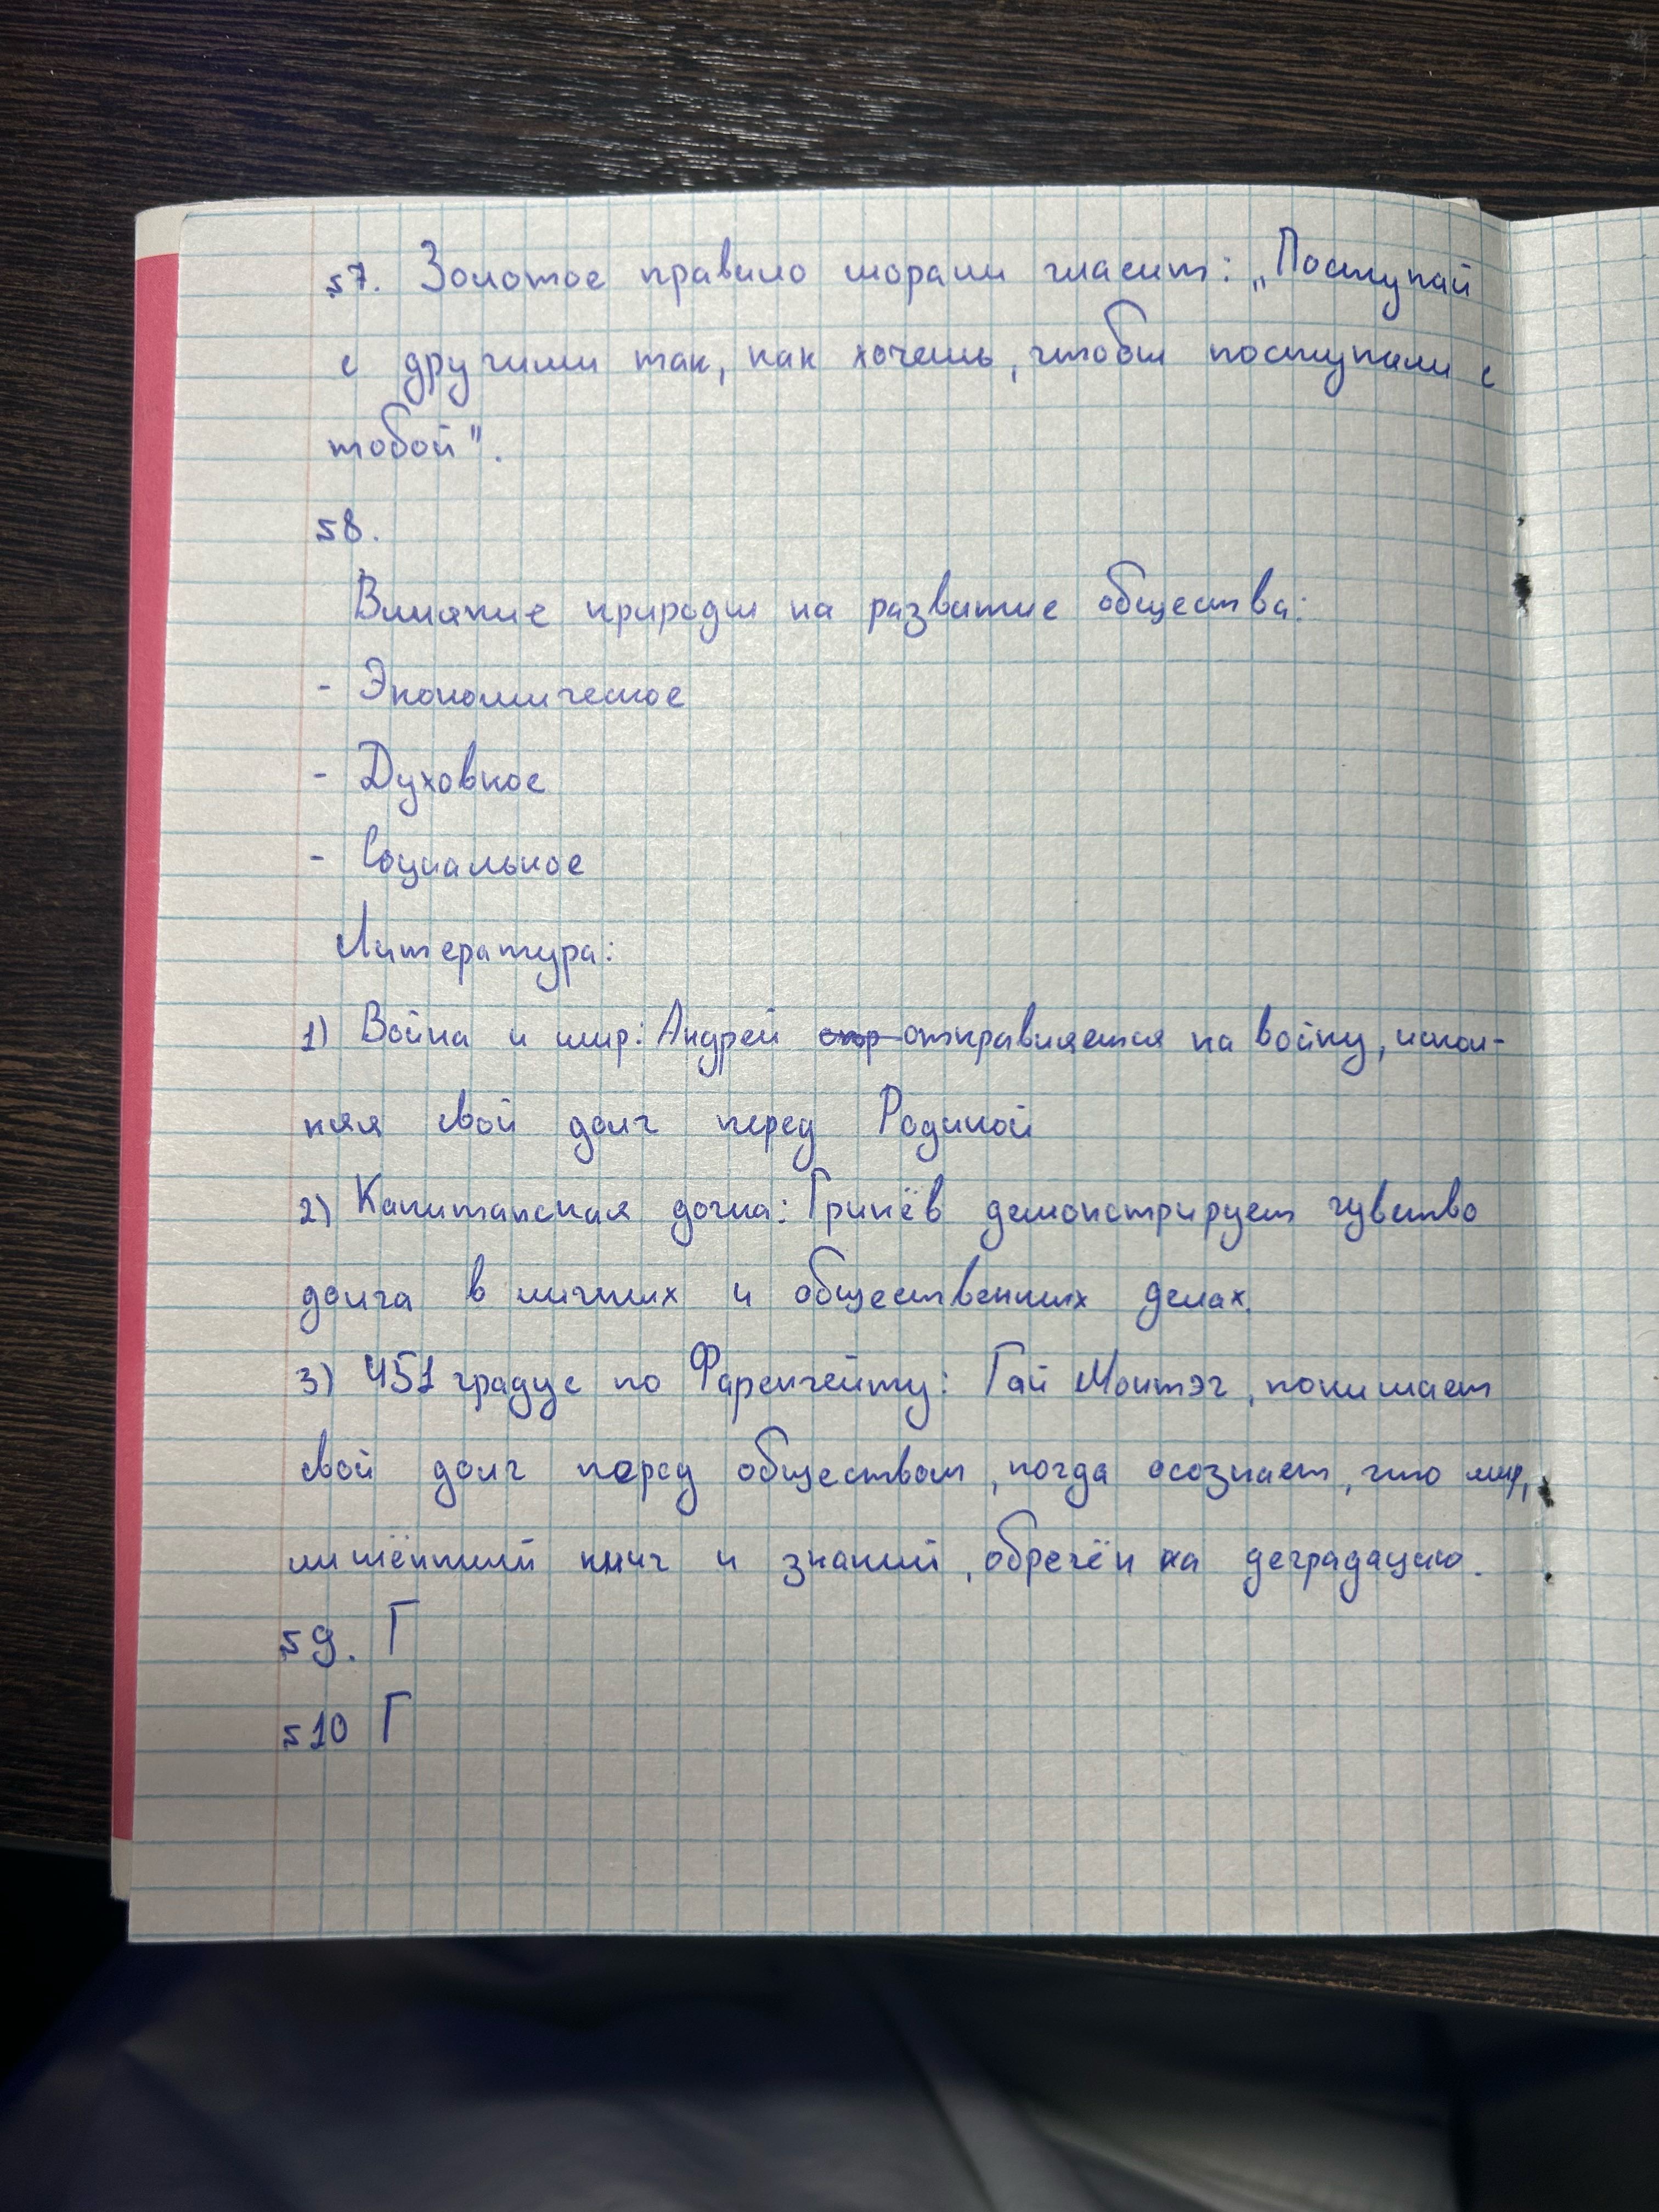 57. Золотое правило морали гласит: „Поступай
с другими так, как хочешь, чтобы поступали с
тобой".
58.
Влияние природы на развитие общества:
- Экономическое
- Духовное
- Социальное
Литература:
1) Война и мир: Андрей отправляется на войну, испол-
няя свой долг перед Родиной
2) Капитанская дочка: Гринёв демонстрирует чувство
долга в личных и общественных делах.
3) 451 градус по Фаренгейту: Гай Монтэг, понимает
свой долг перед обществом, когда осознает, что мир,
лишённый книг и знаний, обречён на деградацию.
59. Г
510 Г